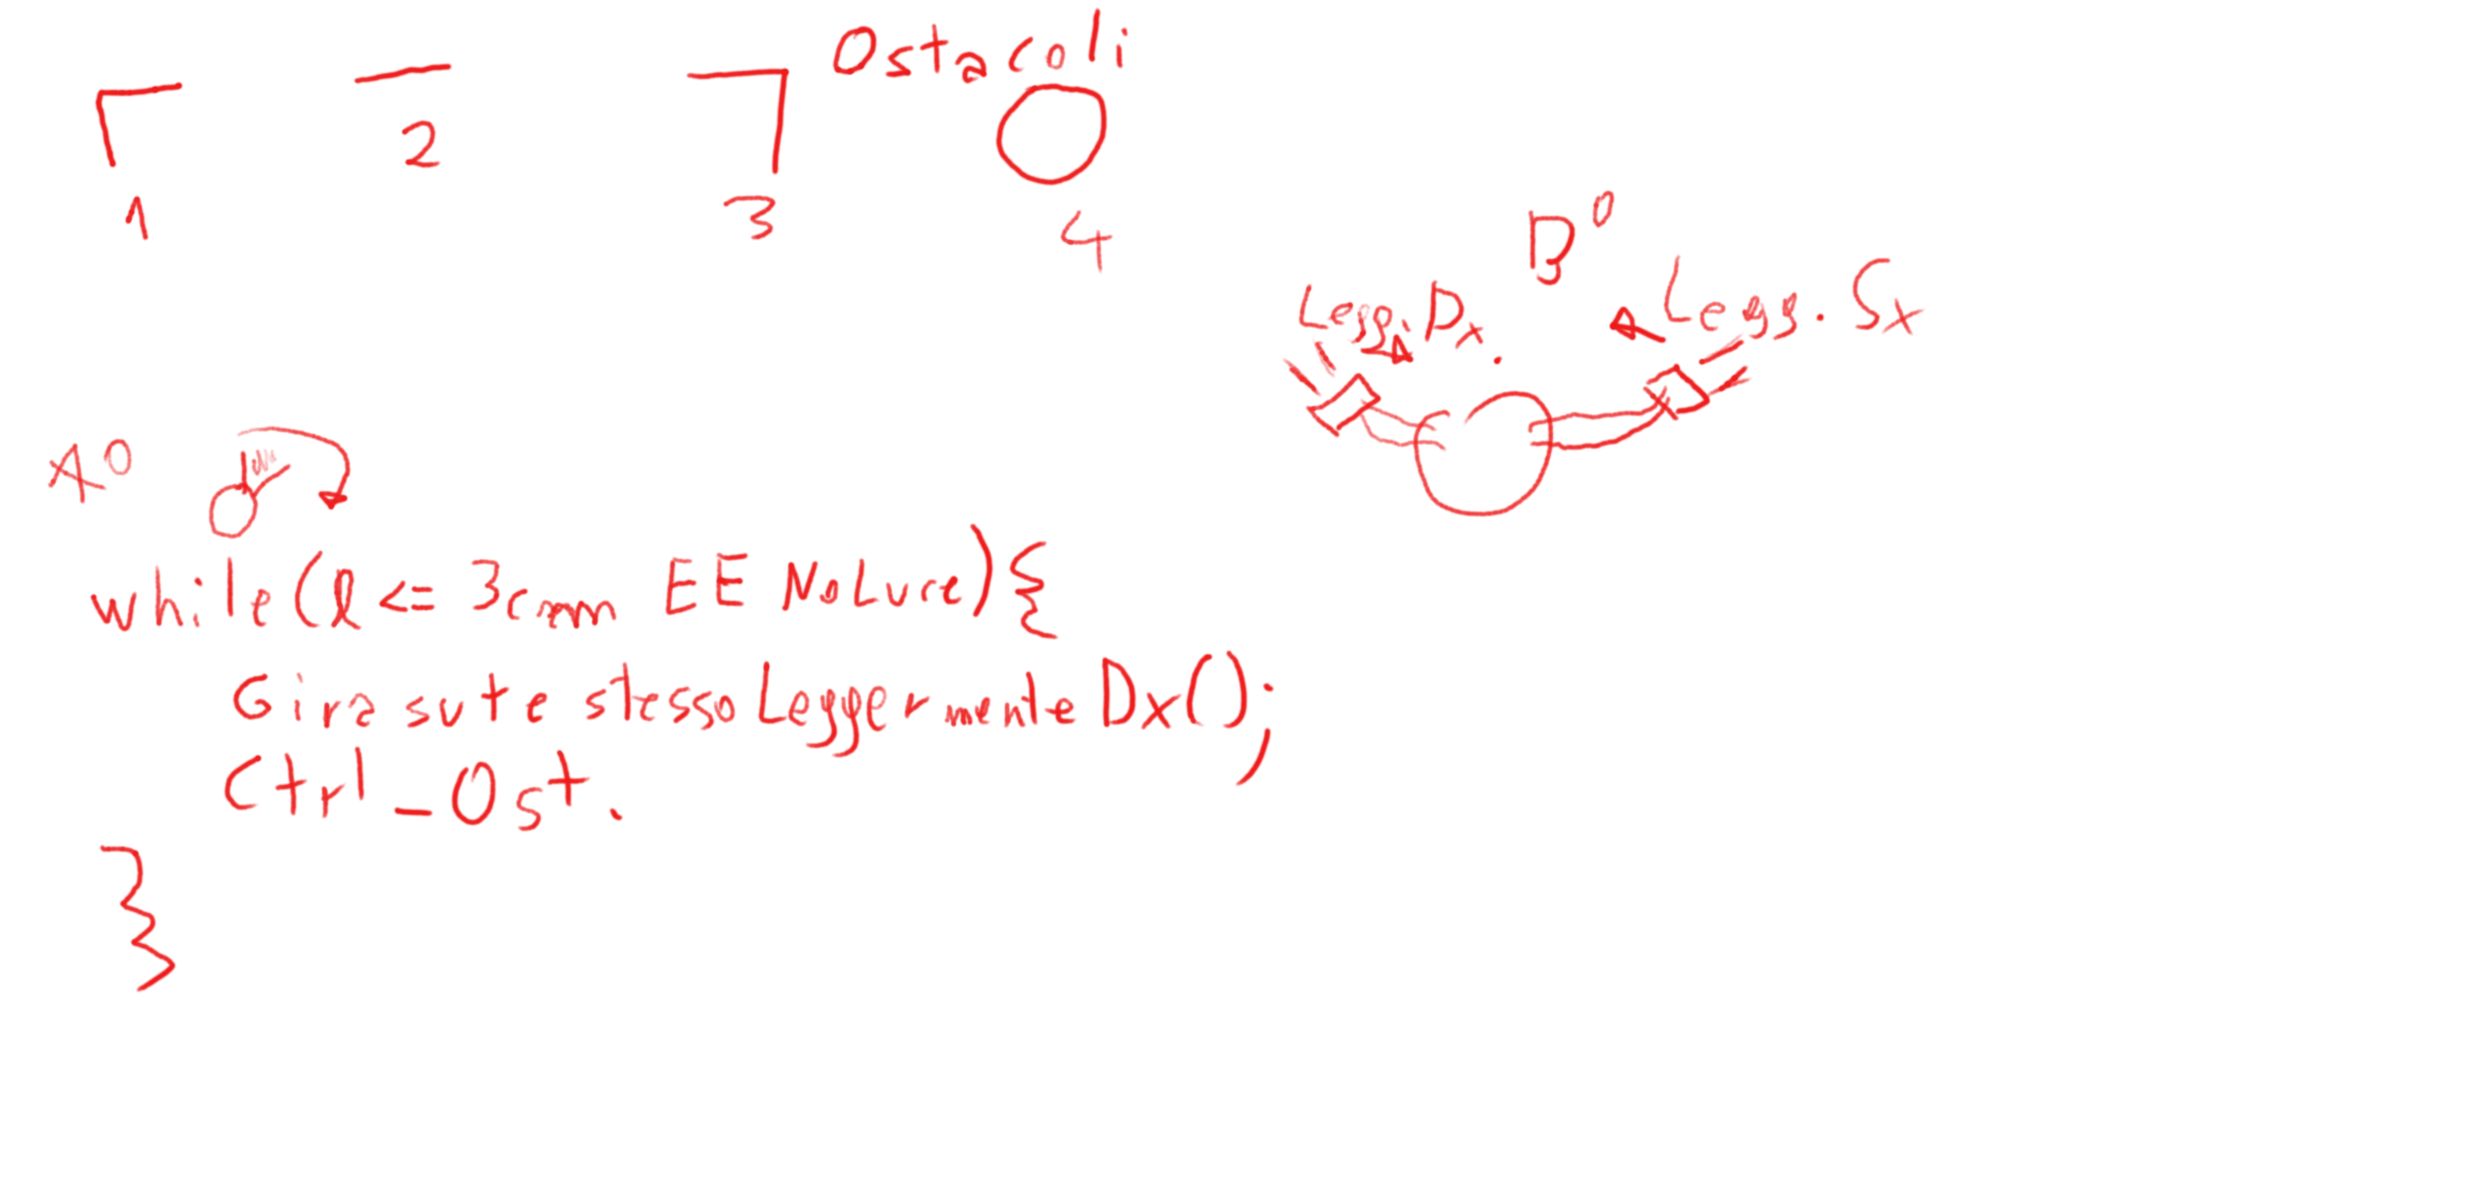 Ostacoli
1
2
3
4
B°
Legg. Dx.
Legg. Sx
A°
while(l <= 3cm EE NoLuce){
Gira su te stesso Leggermente Dx();
Ctrl_Ost.
}